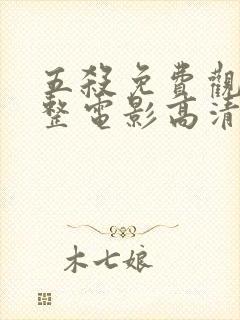 五殺免費觀
整電影高清
木七娘